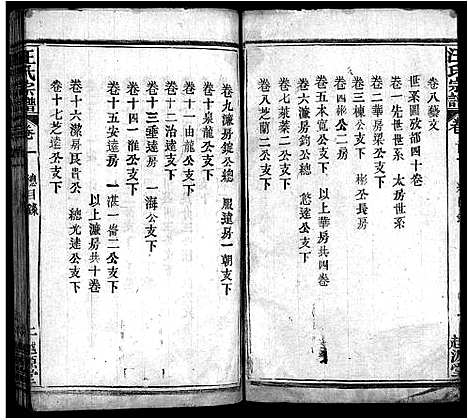 汪氏宗譜
卷八藝文
世系圖攷部四十卷
卷一先世世系 太房世系
卷二華房梁公支下
卷三棟公支下 彬公長房
卷四彬公二房
卷五木寬公支下 以上華房共四卷
卷六濂房鈞公總 悠遠公支下
卷七萊蓁二公支下
卷八芝蘭二公支下
越源堂
汪氏宗譜
卷
總目錄
卷九濂房鈞公總 胤遠房一朝支下
卷十泉龍公支下
卷十一由龍公支下
卷十二治達支下
卷十三垂達房 一海公支下
卷十四一淮公支下
卷十五安達房 一湛一喬二公支下
以上濂房共十卷
卷十六潔房良貴公 總光達公支下
卷十七芝達公支下
二
越源堂